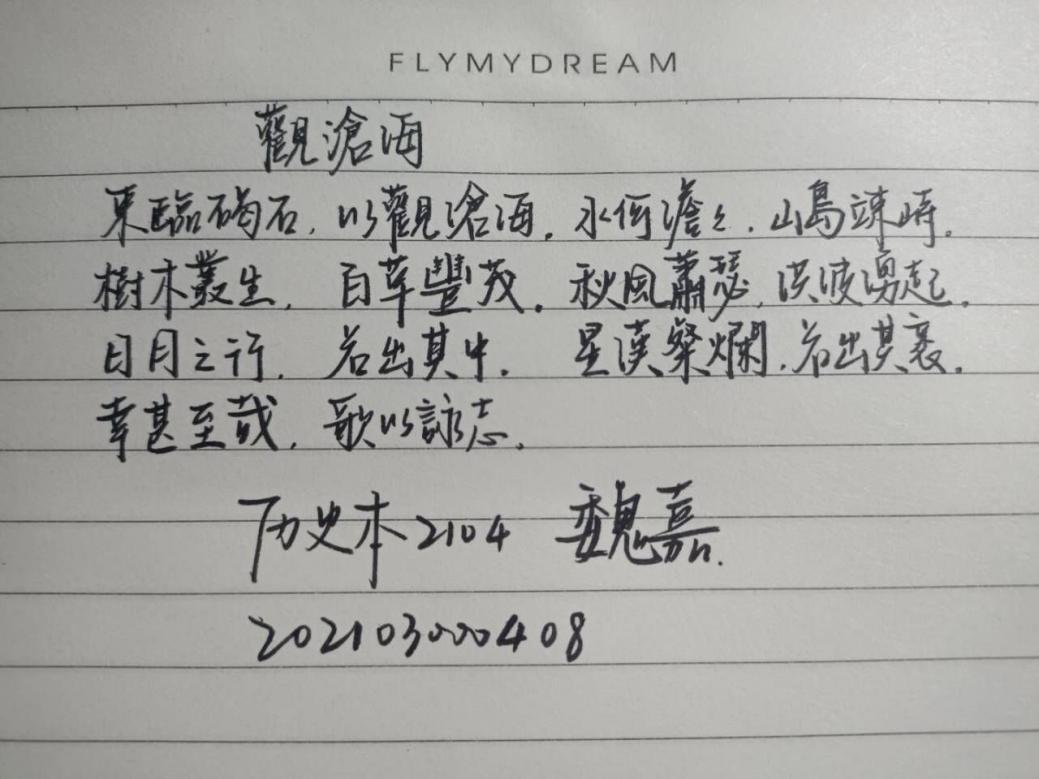 FLYMYDREAM
觀滄海
東臨碣石,以觀滄海.水何澹々.山島竦峙.
樹木叢生,百草豐茂.秋風蕭瑟,洪波湧起.
日月之行.若出其中.星漢燦爛.若出其裏.
幸甚至哉,歌以詠志.
历史本2104 魏嘉.
202103000408